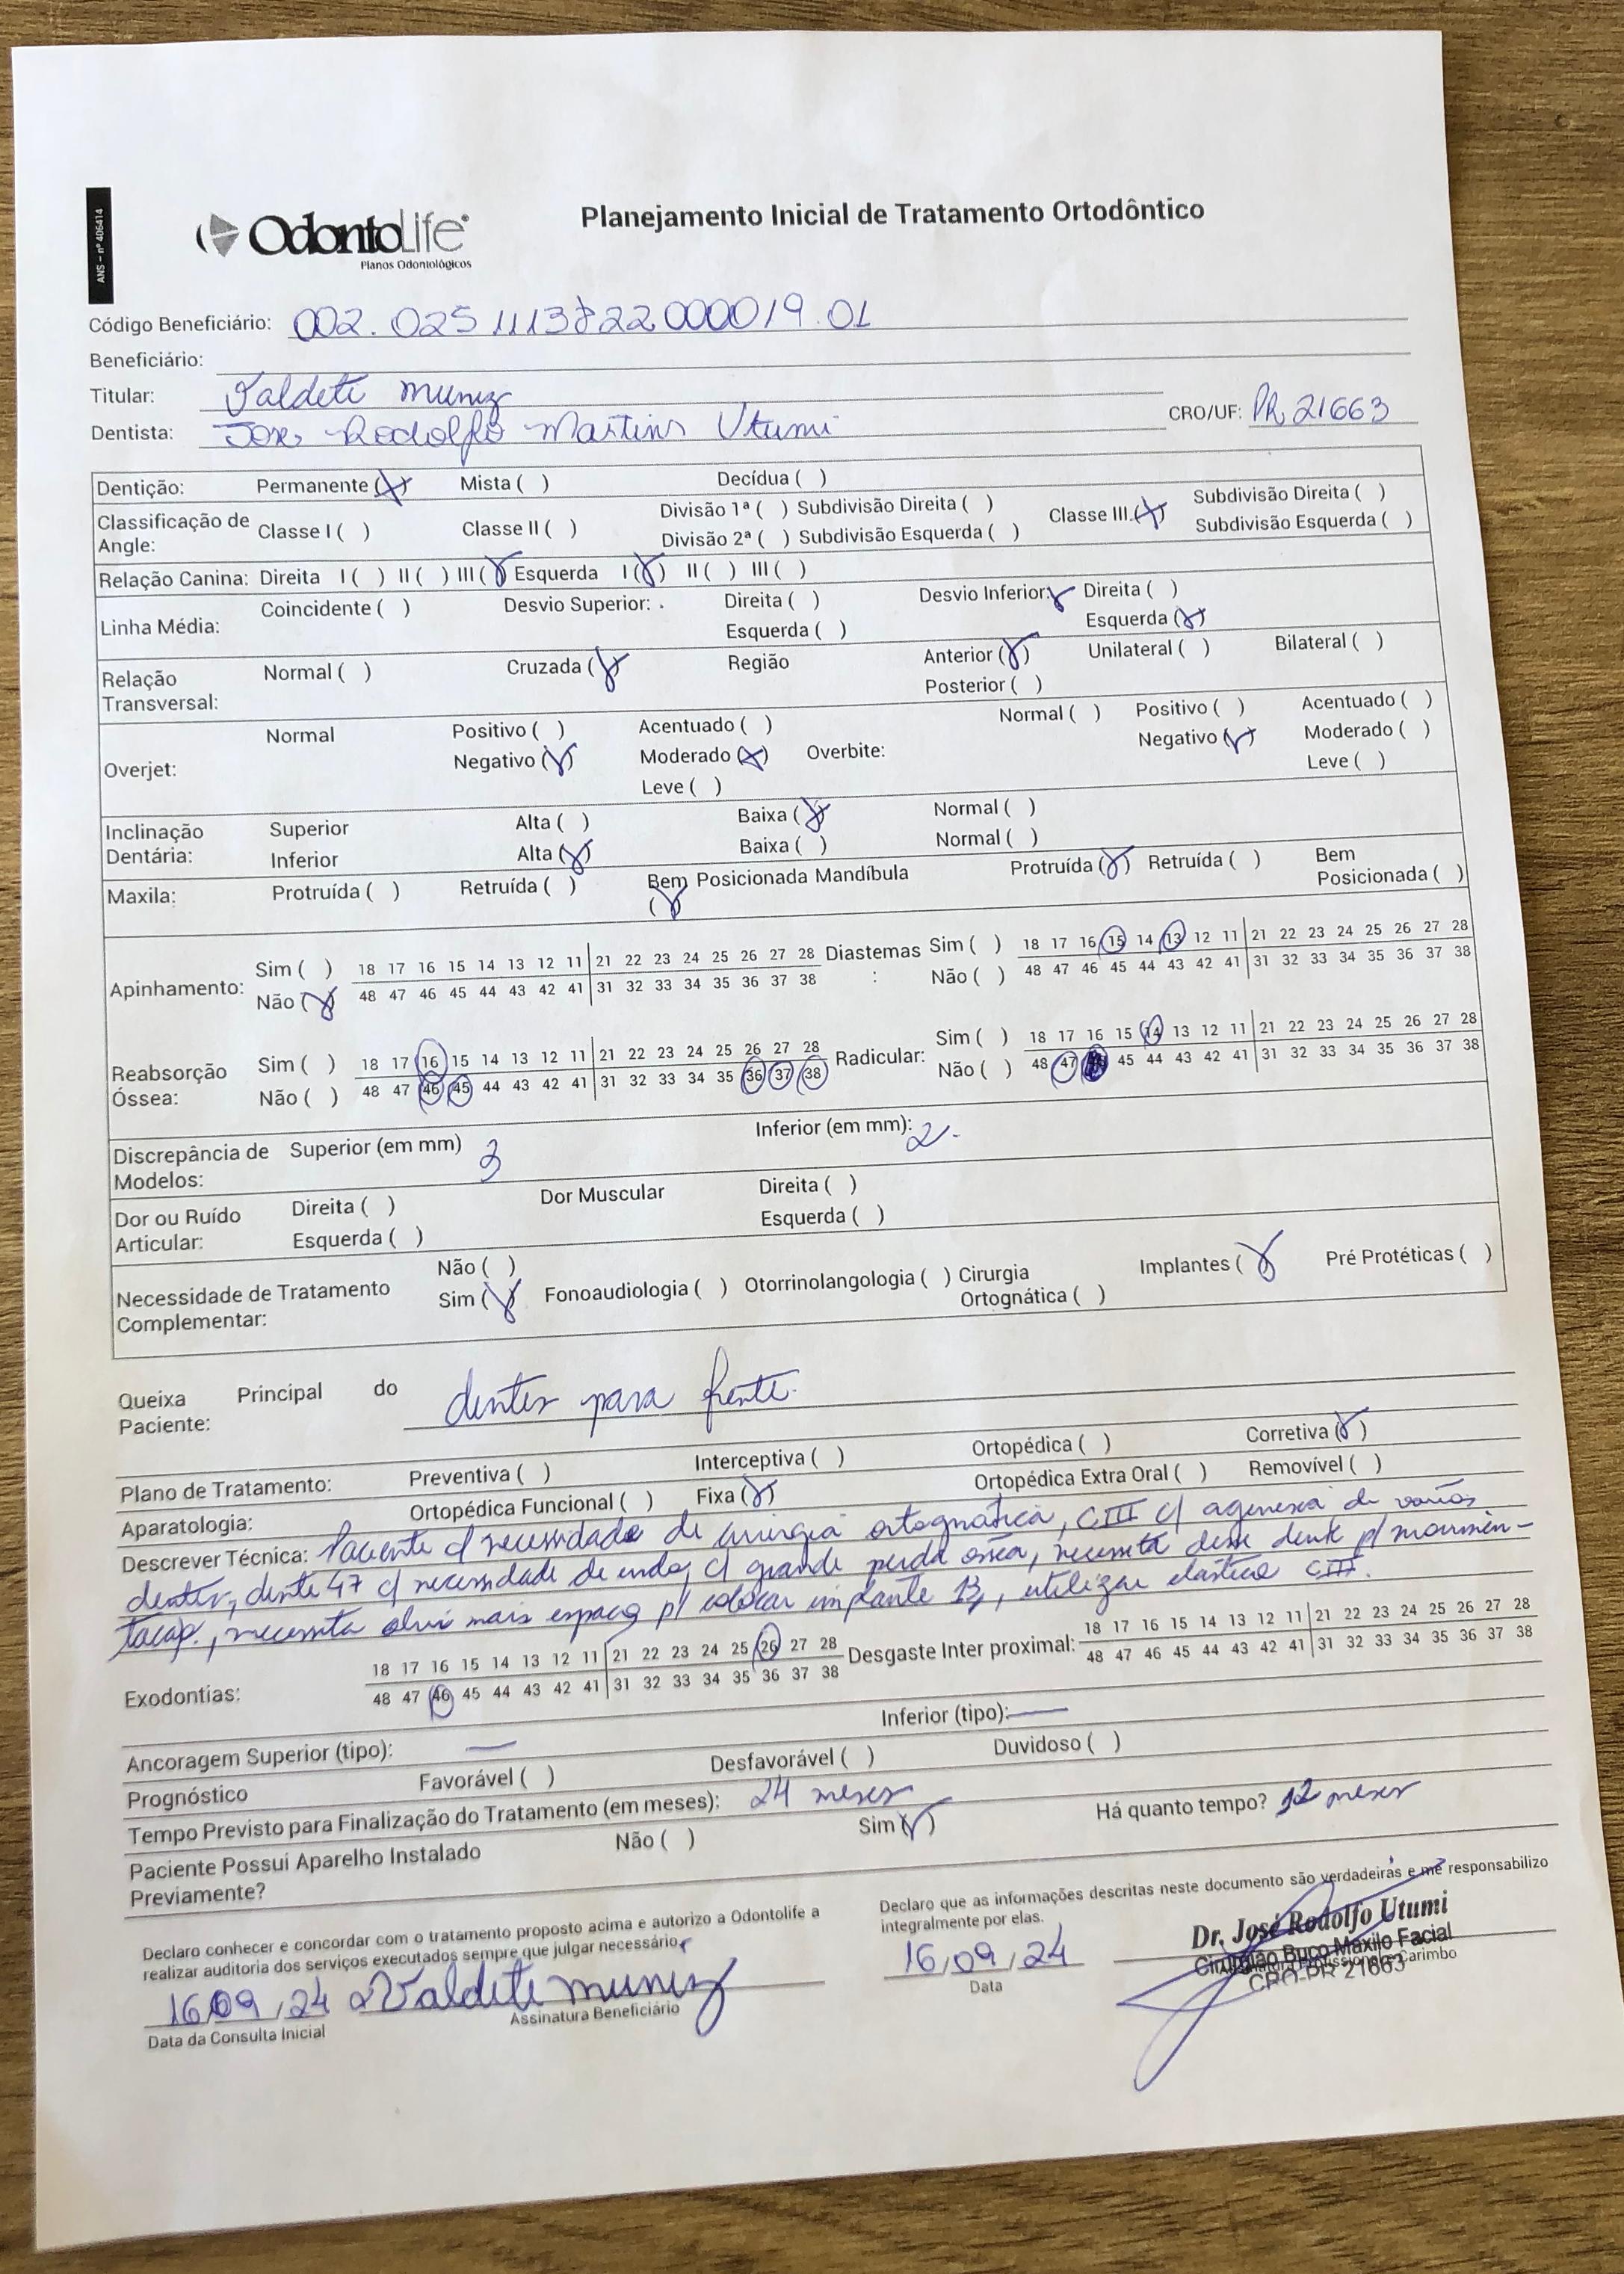 ANS – nº 406414
OdontoLife®
Planos Odontológicos
Planejamento Inicial de Tratamento Ortodôntico
Código Beneficiário: 002.025 11137822000019.01
Beneficiário:
Titular: Valdeti Muniz
Dentista: Jose Rodolfo Martins Utumi CRO/UF: PR 21663
Dentição: Permanente (X) Mista ( ) Decídua ( )
Classificação de Angle: Classe I ( ) Classe II ( ) Divisão 1ª ( ) Subdivisão Direita ( ) Classe III (X) Subdivisão Direita ( )
Divisão 2ª ( ) Subdivisão Esquerda ( ) Subdivisão Esquerda ( )
Relação Canina: Direita I ( ) II ( ) III (X) Esquerda I (X) II ( ) III ( )
Linha Média: Coincidente ( ) Desvio Superior: Direita ( ) Desvio Inferior: X Direita ( )
Esquerda ( ) Esquerda (X)
Relação Transversal: Normal ( ) Cruzada (X) Região Anterior (X) Unilateral ( ) Bilateral ( )
Posterior ( )
Overjet: Normal Positivo ( ) Acentuado ( ) Overbite: Normal ( ) Positivo ( ) Acentuado ( )
Negativo (X) Moderado (X) Negativo (X) Moderado ( )
Leve ( ) Leve ( )
Inclinação Dentária: Superior Alta ( ) Baixa (X) Normal ( )
Inferior Alta (X) Baixa ( ) Normal ( )
Maxila: Protruída ( ) Retruída ( ) Bem Posicionada (X) Mandíbula Protruída (X) Retruída ( ) Bem Posicionada ( )
Apinhamento: Sim ( ) 18 17 16 15 14 13 12 11 21 22 23 24 25 26 27 28 Diastemas : Sim ( ) 18 17 16 15 14 13 12 11 21 22 23 24 25 26 27 28
Não (X) 48 47 46 45 44 43 42 41 31 32 33 34 35 36 37 38 Não ( ) 48 47 46 45 44 43 42 41 31 32 33 34 35 36 37 38
Reabsorção Óssea: Sim ( ) 18 17 16 15 14 13 12 11 21 22 23 24 25 26 27 28 Radicular: Sim ( ) 18 17 16 15 14 13 12 11 21 22 23 24 25 26 27 28
Não ( ) 48 47 46 45 44 43 42 41 31 32 33 34 35 36 37 38 Não ( ) 48 47 45 44 43 42 41 31 32 33 34 35 36 37 38
Discrepância de Modelos: Superior (em mm) 3 Inferior (em mm): 2
Dor ou Ruído Articular: Direita ( ) Dor Muscular Direita ( )
Esquerda ( ) Esquerda ( )
Necessidade de Tratamento Complementar: Não ( )
Sim (X) Fonoaudiologia ( ) Otorrinolangologia ( ) Cirurgia Ortognática ( ) Implantes (X) Pré Protéticas ( )
Queixa Principal do Paciente: dentes para frente.
Plano de Tratamento: Preventiva ( ) Interceptiva ( ) Ortopédica ( ) Corretiva (X)
Aparatologia: Ortopédica Funcional ( ) Fixa (X) Ortopédica Extra Oral ( ) Removível ( )
Descrever Técnica: Paciente c/ necessidade de cirurgia ortognática, CIII c/ agenesia de varios
dentes, dente 47 c/ necessidade de endo, c/ grande perda ossea, necessita desse dente p/ movimen-
tacao, necessita abrir mais espaço p/ colocar implante 13, utilizar elastico CIII.
Exodontias: 18 17 16 15 14 13 12 11 21 22 23 24 25 26 27 28 Desgaste Inter proximal: 18 17 16 15 14 13 12 11 21 22 23 24 25 26 27 28
48 47 46 45 44 43 42 41 31 32 33 34 35 36 37 38 48 47 46 45 44 43 42 41 31 32 33 34 35 36 37 38
Ancoragem Superior (tipo): — Inferior (tipo): —
Prognóstico Favorável ( ) Desfavorável ( ) Duvidoso ( )
Tempo Previsto para Finalização do Tratamento (em meses): 24 meses
Paciente Possuí Aparelho Instalado Previamente? Não ( ) Sim (X) Há quanto tempo? 12 meses
Declaro conhecer e concordar com o tratamento proposto acima e autorizo a Odontolife a
realizar auditoria dos serviços executados sempre que julgar necessário.
16/09/24 Valdeti Muniz
Data da Consulta Inicial Assinatura Beneficiário
Declaro que as informações descritas neste documento são verdadeiras e me responsabilizo
integralmente por elas.
16/09/24
Data
Dr. José Rodolfo Utumi
Cirurgião Buco Maxilo Facial
CRO-PR 21663
Carimbo